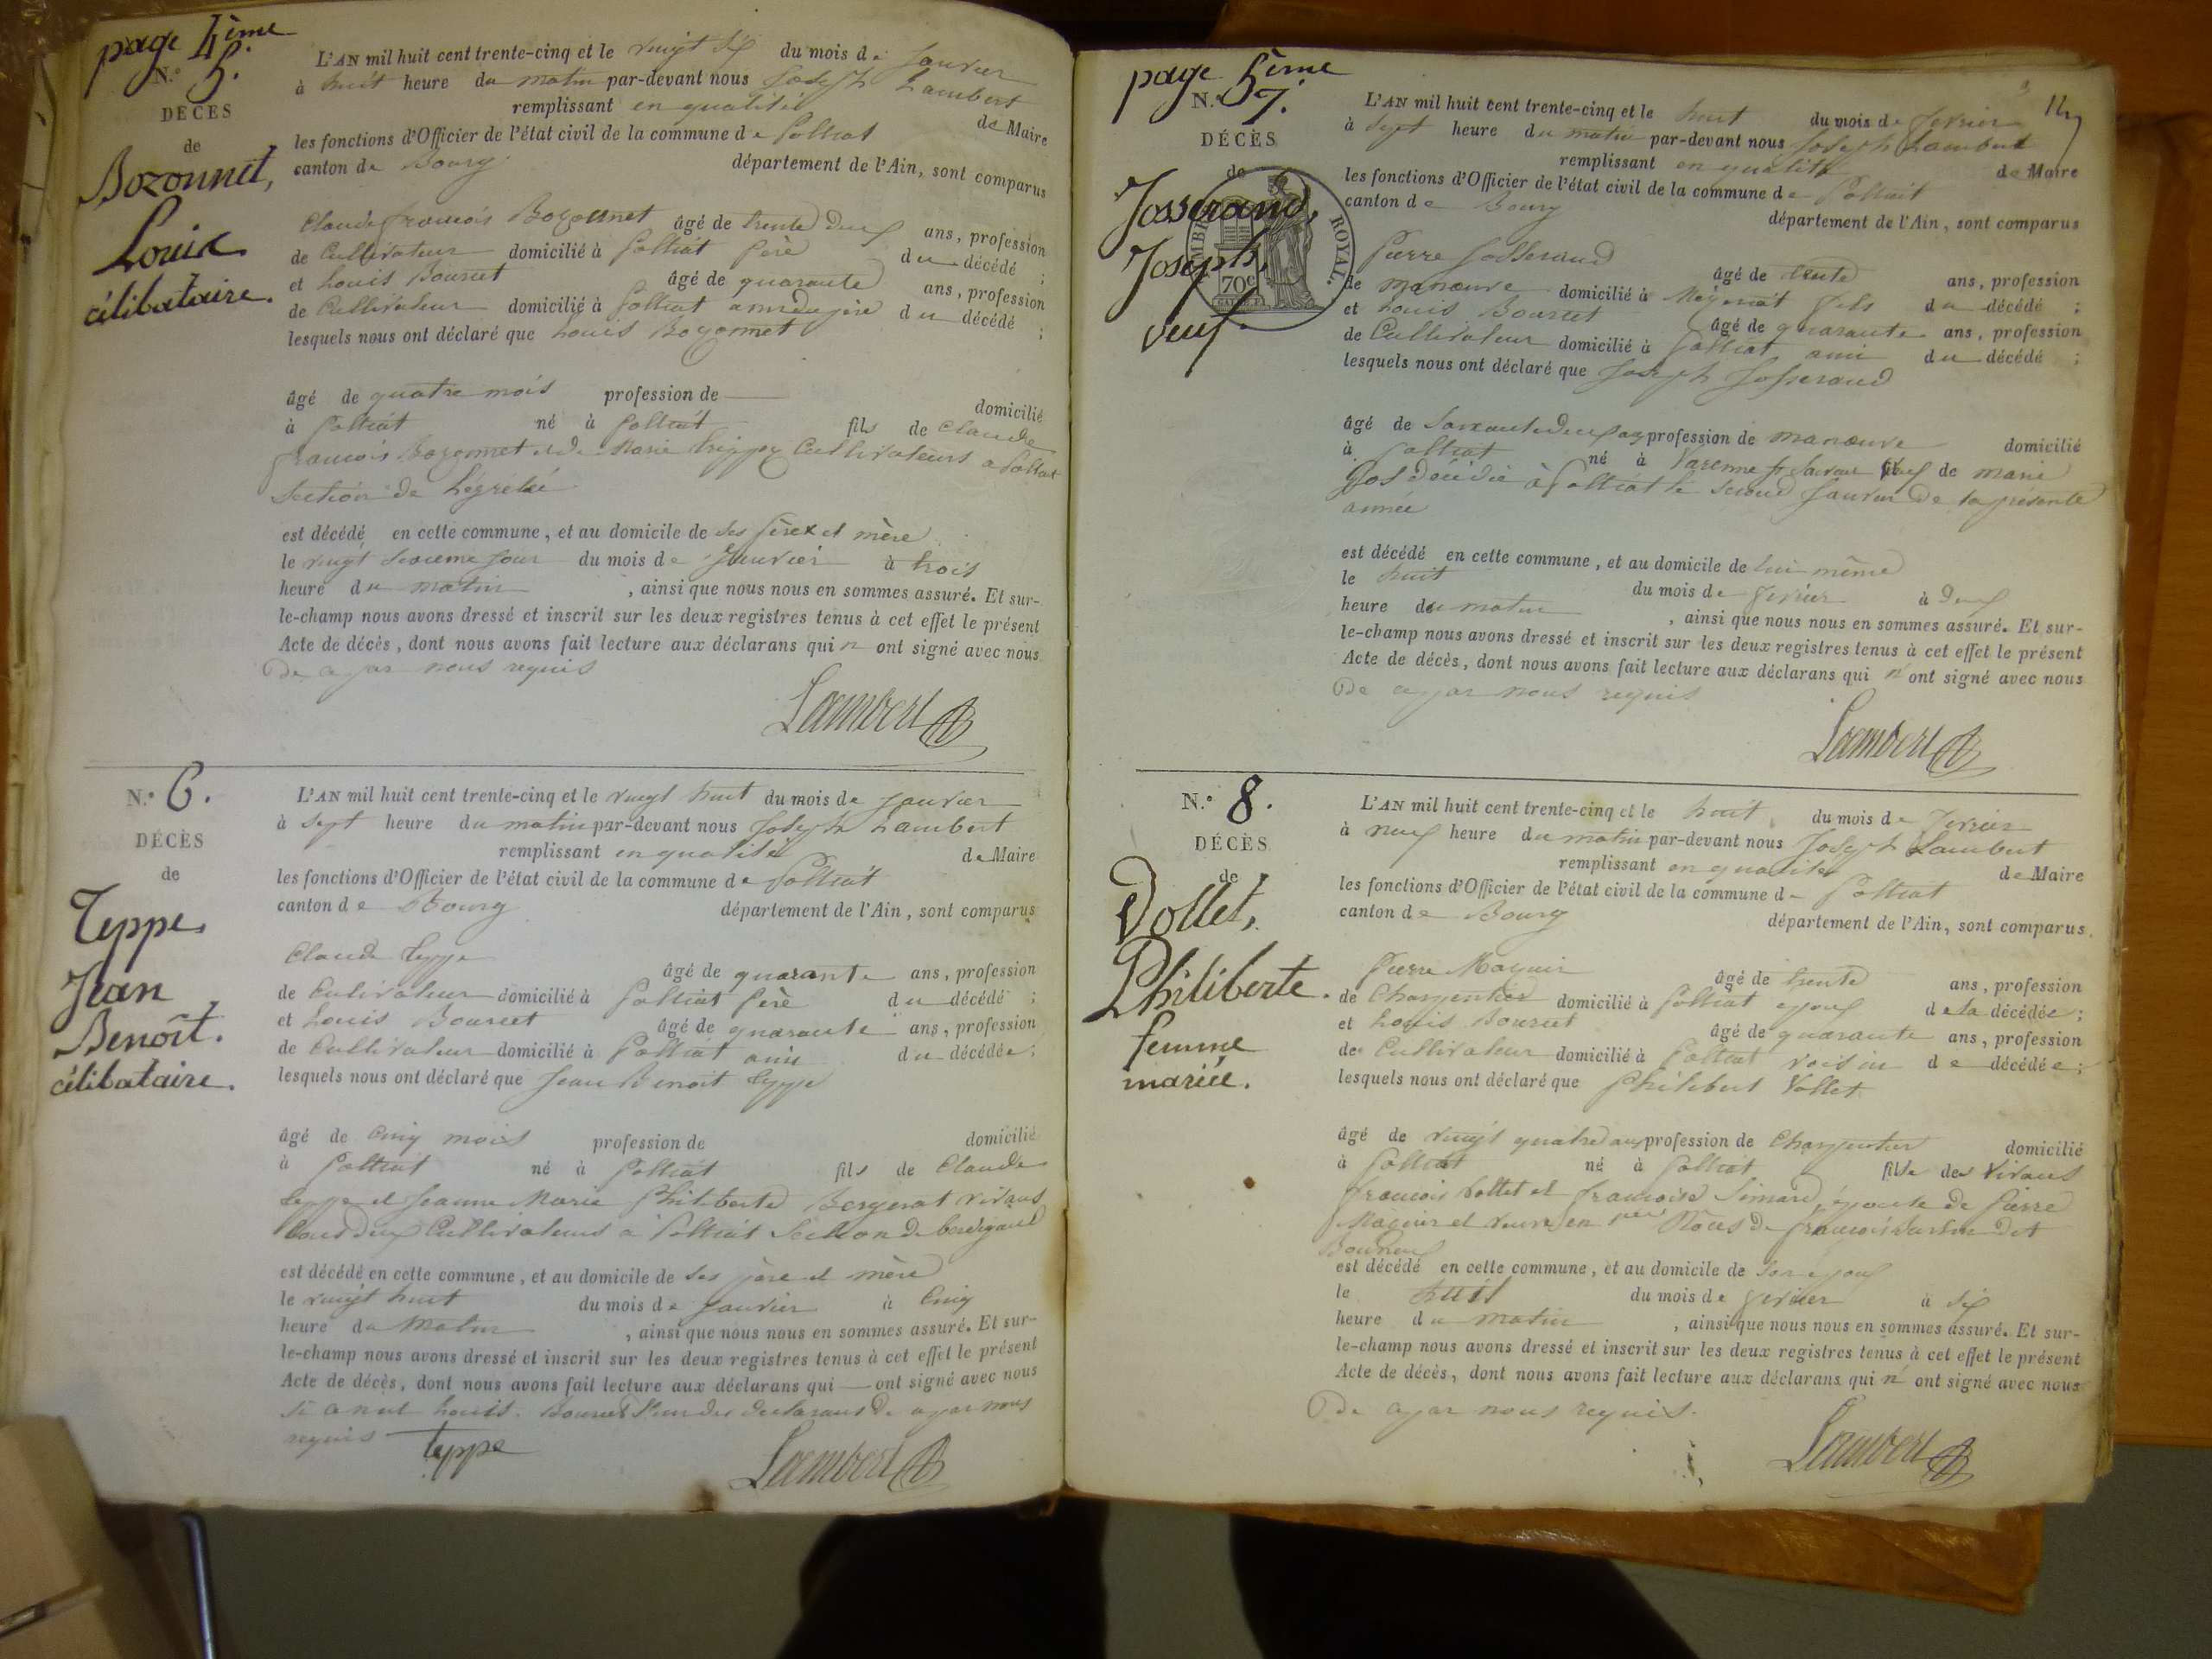 page 4ème
N.° 5.
DÉCÈS
de
Bozonnet,
Louis
célibataire.
L'AN mil huit cent trente-cinq et le vingt six du mois de Janvier
à huit heure du matin par-devant nous Joseph Lambert
remplissant en qualité de Maire
les fonctions d'Officier de l'état civil de la commune de Polliat
canton de Bourg département de l'Ain, sont comparus
Claude françois Bozonnet âgé de trente deux ans, profession
de Cultivateur domicilié à Polliat père du décédé ;
et Louis Bourcet âgé de quarante ans, profession
de Cultivateur domicilié à Polliat ami du père du décédé ;
lesquels nous ont déclaré que Louis Bozonnet
âgé de quatre mois profession de — domicilié
à Polliat né à Polliat fils de Claude
françois Bozonnet et de Marie Cultivateurs a Polliat
Section de
est décédé en cette commune, et au domicile de ses père et mère
le vingt sixieme jour du mois de Janvier à trois
heure du matin , ainsi que nous nous en sommes assuré. Et sur-
le-champ nous avons dressé et inscrit sur les deux registres tenus à cet effet le présent
Acte de décès, dont nous avons fait lecture aux déclarans qui n ont signé avec nous
De ce par nous requis
Lambert
N.° 6.
DÉCÈS
de
Teppe,
Jean
Benoît.
célibataire.
L'AN mil huit cent trente-cinq et le vingt huit du mois de Janvier
à sept heure du matin par-devant nous Joseph Lambert
remplissant en qualité de Maire
les fonctions d'Officier de l'état civil de la commune de Polliat
canton de Bourg département de l'Ain, sont comparus
Claude Teppe âgé de quarante ans, profession
de Cultivateur domicilié à Polliat père du décédé ;
et Louis Bourcet âgé de quarante ans, profession
de Cultivateur domicilié à Polliat ami du décédée ;
lesquels nous ont déclaré que Jean Benoit Teppe
âgé de Cinq mois profession de domicilié
à Polliat né à Polliat fils de Claude
Teppe et Jeanne Marie Philiberte Bergerat vivans
tous deux Cultivateurs a Polliat Section de
est décédé en cette commune, et au domicile de ses père et mère
le vingt huit du mois de Janvier à Cinq
heure du Matin , ainsi que nous nous en sommes assuré. Et sur-
le-champ nous avons dressé et inscrit sur les deux registres tenus à cet effet le présent
Acte de décès, dont nous avons fait lecture aux déclarans qui — ont signé avec nous
Louis Bourcet l'un des declarans de ce par nous
requis Teppe
Lambert
page 5ème
N.° 7.
DÉCÈS
de
Josserand,
Joseph,
veuf.
TIMBRE ROYAL.
70c
L'AN mil huit cent trente-cinq et le huit du mois de fevrier
à sept heure du matin par-devant nous Joseph Lambert
remplissant en qualité de Maire
les fonctions d'Officier de l'état civil de la commune de Polliat
canton de Bourg département de l'Ain, sont comparus
Pierre Josserand âgé de trente ans, profession
de manœuvre domicilié à fils du décédé ;
et Louis Bourcet âgé de quarante ans, profession
de Cultivateur domicilié à Polliat ami du décédé ;
lesquels nous ont déclaré que Joseph Josserand
âgé de Soixante deux ans profession de manœuvre domicilié
à Polliat né à Varenne St Sauveur veuf de marie
Gos décédée à Polliat le second Janvier de la présente
année
est décédé en cette commune, et au domicile de lui même
le huit du mois de fevrier à deux
heure du matin , ainsi que nous nous en sommes assuré. Et sur-
le-champ nous avons dressé et inscrit sur les deux registres tenus à cet effet le présent
Acte de décès, dont nous avons fait lecture aux déclarans qui n' ont signé avec nous
De ce par nous requis
Lambert
N.° 8.
DÉCÈS
de
Vollet,
Philiberte.
femme
mariée.
L'AN mil huit cent trente-cinq et le huit du mois de fevrier
à neuf heure du matin par-devant nous Joseph Lambert
remplissant en qualité de Maire
les fonctions d'Officier de l'état civil de la commune de Polliat
canton de Bourg département de l'Ain, sont comparus
Pierre Moguin âgé de trente ans, profession
de Charpentier domicilié à Polliat epoux de la décédée ;
et Louis Bourcet âgé de quarante ans, profession
de Cultivateur domicilié à Polliat voisin de décédée ;
lesquels nous ont déclaré que Philibert Vollet
âgé de vingt quatre ans profession de Charpentier domicilié
à Polliat né à Polliat fille des vivans
francois Vollet et francoise Simard, épouse de Pierre
Moguin et veuve en Nôces de francois dit
est décédé en cette commune, et au domicile de son epoux
le huit du mois de fevrier à six
heure du matin , ainsi que nous nous en sommes assuré. Et sur-
le-champ nous avons dressé et inscrit sur les deux registres tenus à cet effet le présent
Acte de décès, dont nous avons fait lecture aux déclarans qui n' ont signé avec nous
De ce par nous requis.
Lambert